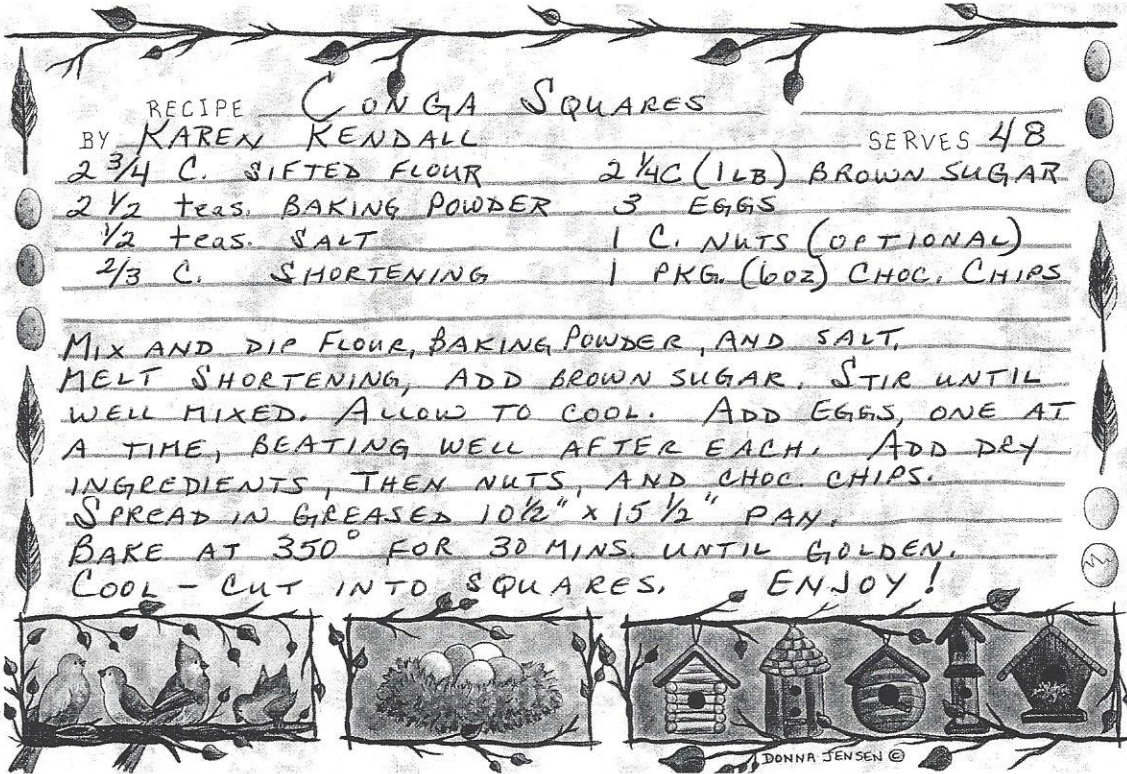 RECIPE CONGA SQUARES
BY KAREN KENDALL SERVES 48
2 3/4 C. SIFTED FLOUR 2 1/4C (1 LB) BROWN SUGAR
2 1/2 teas. BAKING POWDER 3 EGGS
1/2 teas. SALT 1 C. NUTS (OPTIONAL)
2/3 C. SHORTENING 1 PKG. (6oz) CHOC. CHIPS
MIX AND DIP FLOUR, BAKING POWDER, AND SALT.
MELT SHORTENING, ADD BROWN SUGAR. STIR UNTIL
WELL MIXED. ALLOW TO COOL. ADD EGGS, ONE AT
A TIME, BEATING WELL AFTER EACH. ADD DRY
INGREDIENTS, THEN NUTS, AND CHOC. CHIPS.
SPREAD IN GREASED 10 1/2" x 15 1/2" PAN.
BAKE AT 350° FOR 30 MINS. UNTIL GOLDEN.
COOL - CUT INTO SQUARES. ENJOY!
DONNA JENSEN ©